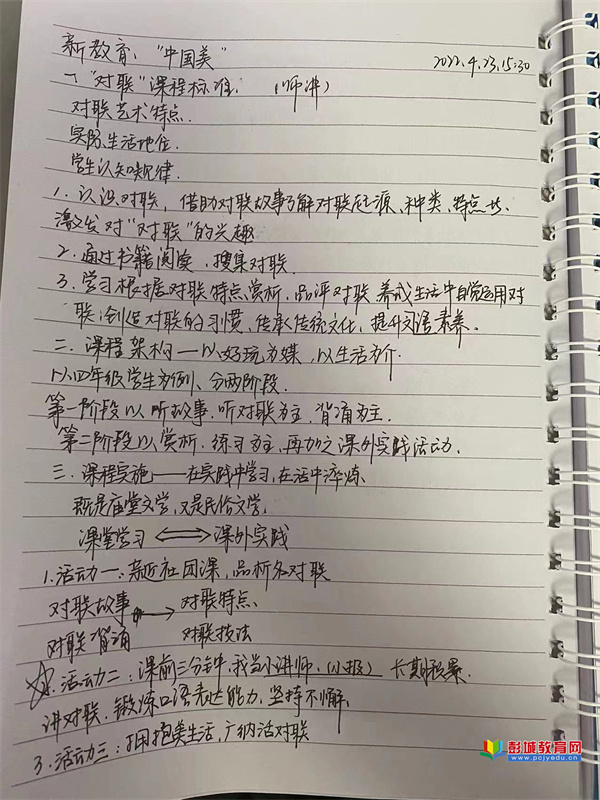 新教育、“中国美” 2022.4.23.15:30
一“对联”课程标准. (师讲)
对联艺术特点.
实际生活地位.
学生认知规律.
1. 认识对联、借助对联故事了解对联起源、种类、特点
激发对“对联”的兴趣
2. 通过书籍阅读、搜集对联.
3. 学习根据对联特点赏析、品评对联 养成生活中自觉运用对
联、创造对联的习惯、传承传统文化、提升语素养.
二、课程架构——以好玩为媒、以生活为介.
以四年级学生为例、分两阶段.
第一阶段以听故事、听对联为主、背诵为主.
第二阶段以赏析、练习为主、再加之课外实践活动.
三、课程实施——在实践中学习,在活中淬炼.
既是庙堂文学、又是民俗文学.
课堂学习 ⟺ 课外实践
1. 活动一: 社团课,品析名对联
对联故事 → 对联特点
对联背诵 对联技法
2. 活动二: 课前三分钟、我当小讲师. (小报) 长期积累.
讲对联、锻炼口语表达能力、坚持不懈.
3. 活动三: 拥抱美生活,广纳活对联
彭城教育网
www.pcjyedu.cn